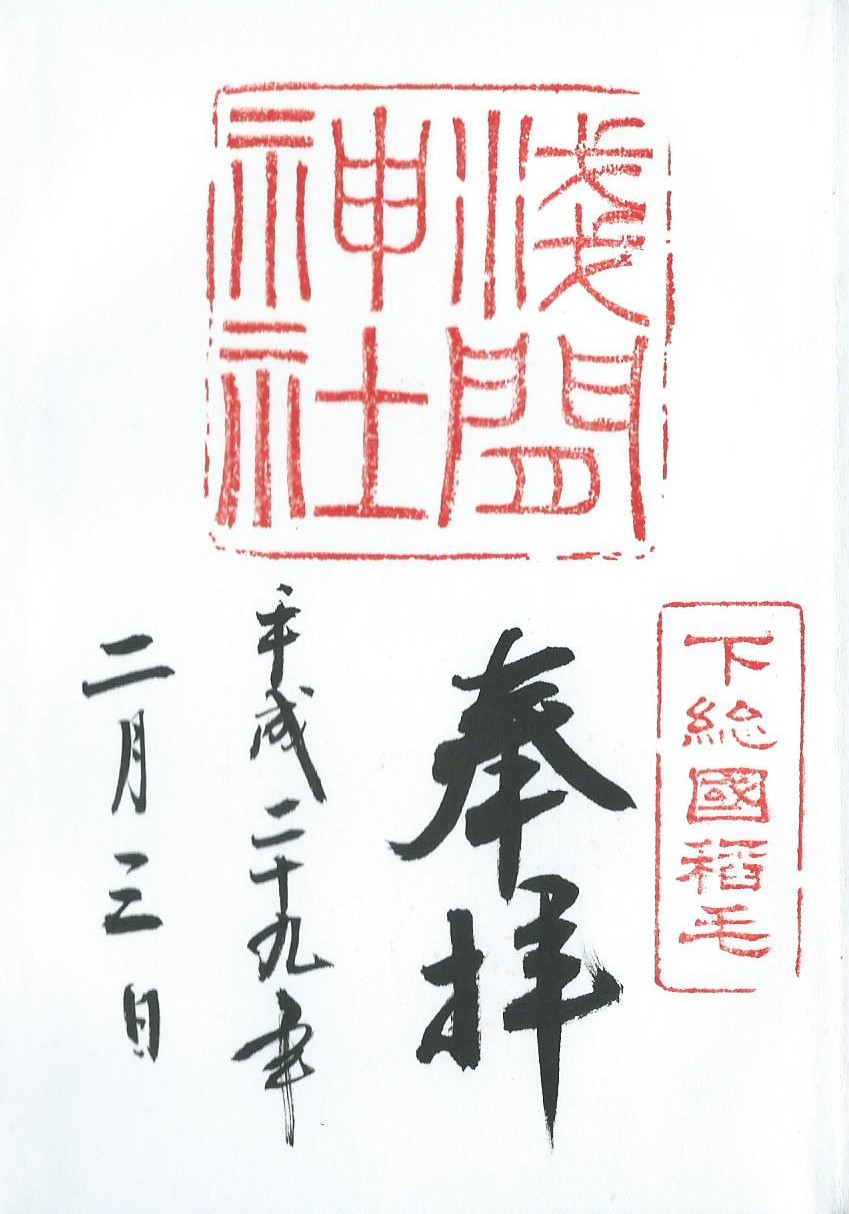 下総國稲毛
淺間
神社
奉拝
平成二十九年
二月三日